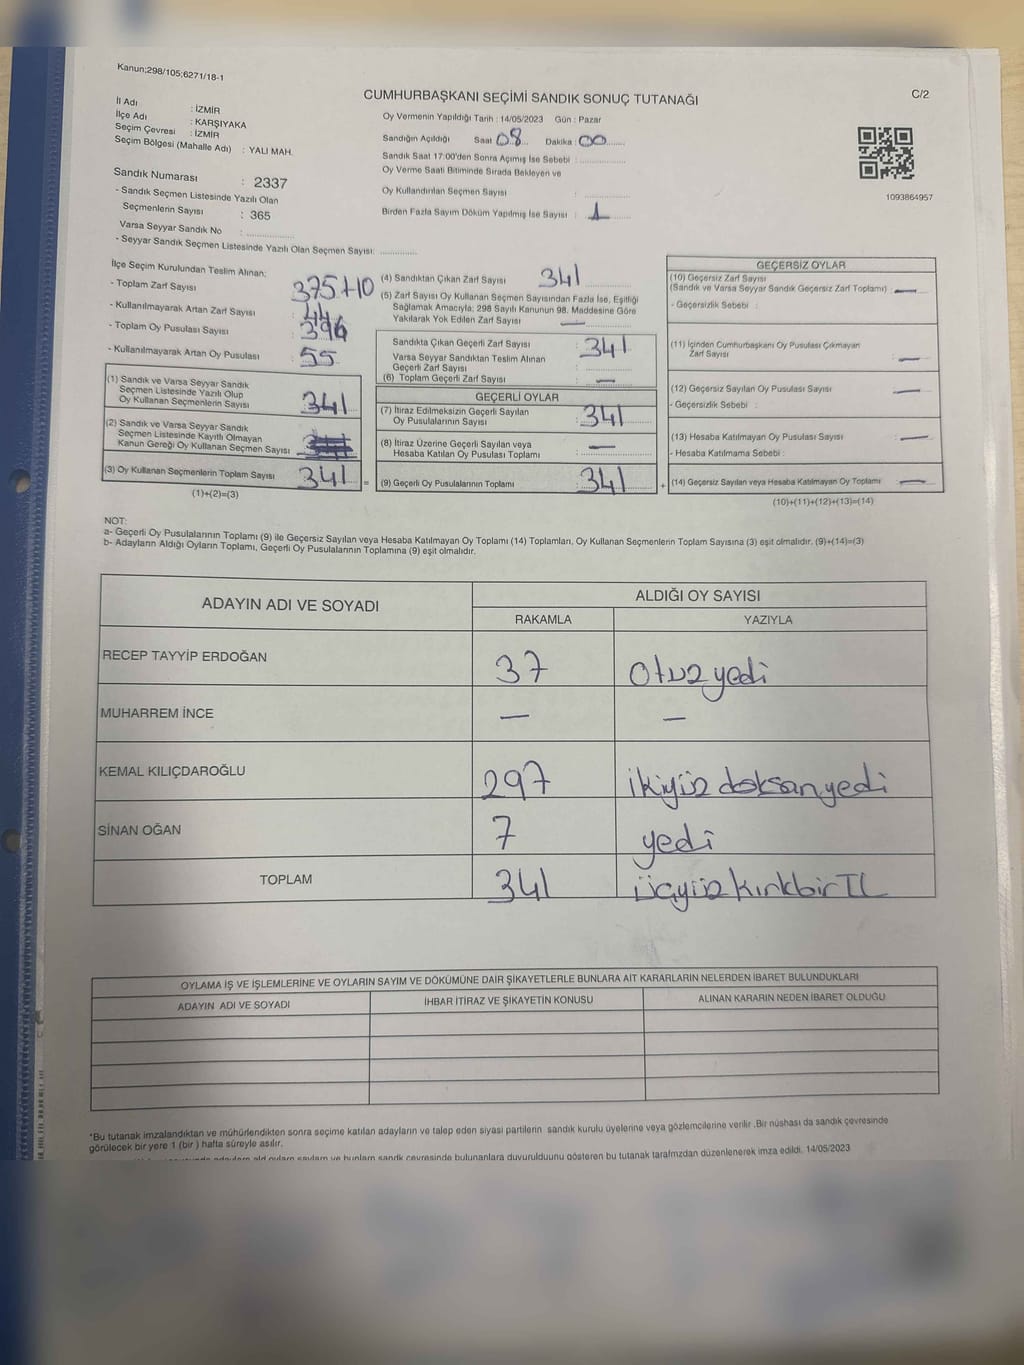 Kanun;298/105;6271/18-1
C/2
CUMHURBAŞKANI SEÇİMİ SANDIK SONUÇ TUTANAĞI
İl Adı : İZMİR
İlçe Adı : KARŞIYAKA
Seçim Çevresi : İZMİR
Seçim Bölgesi (Mahalle Adı) : YALI MAH.
Sandık Numarası : 2337
- Sandık Seçmen Listesinde Yazılı Olan
Seçmenlerin Sayısı : 365
Varsa Seyyar Sandık No :
- Seyyar Sandık Seçmen Listesinde Yazılı Olan Seçmen Sayısı:
Oy Vermenin Yapıldığı Tarih : 14/05/2023 Gün : Pazar
Sandığın Açıldığı Saat 08 Dakika : 00
Sandık Saat 17:00'den Sonra Açımış İse Sebebi :
Oy Verme Saati Bitiminde Sırada Bekleyen ve
Oy Kullandırılan Seçmen Sayısı :
Birden Fazla Sayım Döküm Yapılmış İse Sayısı : 1
1093864957
İlçe Seçim Kurulundan Teslim Alınan:
- Toplam Zarf Sayısı : 375+10
- Kullanılmayarak Artan Zarf Sayısı : 44
- Toplam Oy Pusulası Sayısı : 396
- Kullanılmayarak Artan Oy Pusulası : 55
(1) Sandık ve Varsa Seyyar Sandık
Seçmen Listesinde Yazılı Olup
Oy Kullanan Seçmenlerin Sayısı : 341
(2) Sandık ve Varsa Seyyar Sandık
Seçmen Listesinde Kayıtlı Olmayan
Kanun Gereği Oy Kullanan Seçmen Sayısı
(3) Oy Kullanan Seçmenlerin Toplam Sayısı : 341 =
(1)+(2)=(3)
(4) Sandıktan Çıkan Zarf Sayısı 341
(5) Zarf Sayısı Oy Kullanan Seçmen Sayısından Fazla İse, Eşitliği
Sağlamak Amacıyla; 298 Sayılı Kanunun 98. Maddesine Göre
Yakılarak Yok Edilen Zarf Sayısı : —
Sandıkta Çıkan Geçerli Zarf Sayısı : 341
Varsa Seyyar Sandıktan Teslim Alınan
Geçerli Zarf Sayısı :
(6) Toplam Geçerli Zarf Sayısı : —
GEÇERLİ OYLAR
(7) İtiraz Edilmeksizin Geçerli Sayılan
Oy Pusulalarının Sayısı : 341
(8) İtiraz Üzerine Geçerli Sayılan veya
Hesaba Katılan Oy Pusulası Toplamı : —
(9) Geçerli Oy Pusulalarının Toplamı : 341 +
GEÇERSİZ OYLAR
(10) Geçersiz Zarf Sayısı
(Sandık ve Varsa Seyyar Sandık Geçersiz Zarf Toplamı) : —
- Geçersizlik Sebebi :
(11) İçinden Cumhurbaşkanı Oy Pusulası Çıkmayan
Zarf Sayısı : —
(12) Geçersiz Sayılan Oy Pusulası Sayısı : —
- Geçersizlik Sebebi :
(13) Hesaba Katılmayan Oy Pusulası Sayısı : —
- Hesaba Katılmama Sebebi :
(14) Geçersiz Sayılan veya Hesaba Katılmayan Oy Toplamı : —
(10)+(11)+(12)+(13)=(14)
NOT:
a- Geçerli Oy Pusulalarının Toplamı (9) ile Geçersiz Sayılan veya Hesaba Katılmayan Oy Toplamı (14) Toplamları, Oy Kullanan Seçmenlerin Toplam Sayısına (3) eşit olmalıdır. (9)+(14)=(3)
b- Adayların Aldığı Oyların Toplamı, Geçerli Oy Pusulalarının Toplamına (9) eşit olmalıdır.
ADAYIN ADI VE SOYADI
ALDIĞI OY SAYISI
RAKAMLA YAZIYLA
RECEP TAYYİP ERDOĞAN 37 Otuzyedi
MUHARREM İNCE — —
KEMAL KILIÇDAROĞLU 297 ikiyüz doksanyedi
SİNAN OĞAN 7 yedi
TOPLAM 341 üçyüzkırkbir TL
OYLAMA İŞ VE İŞLEMLERİNE VE OYLARIN SAYIM VE DÖKÜMÜNE DAİR ŞİKAYETLERLE BUNLARA AİT KARARLARIN NELERDEN İBARET BULUNDUKLARI
ADAYIN ADI VE SOYADI İHBAR İTİRAZ VE ŞİKAYETİN KONUSU ALINAN KARARIN NEDEN İBARET OLDUĞU
*Bu tutanak imzalandıktan ve mühürlendikten sonra seçime katılan adayların ve talep eden siyasi partilerin sandık kurulu üyelerine veya gözlemcilerine verilir .Bir nüshası da sandık çevresinde
görülecek bir yere 1 (bir ) hafta süreyle asılır.
sandık çevresinde bulunanlara duyurulduunu gösteren bu tutanak tarafmzdan düzenlenerek imza edildi. 14/05/2023